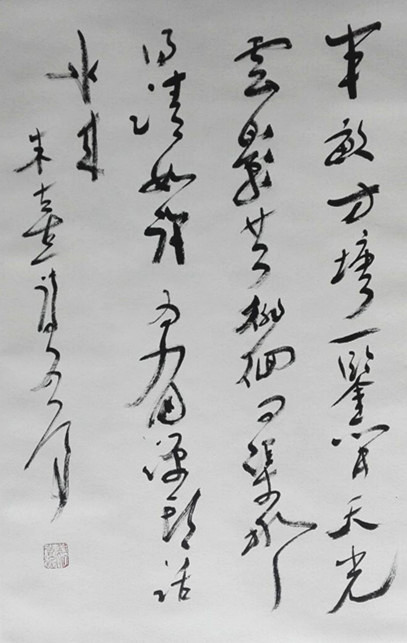 半畝方塘一鑒開天光
雲影共徘徊問渠那
得清如許為有源頭活
水來
朱熹詩